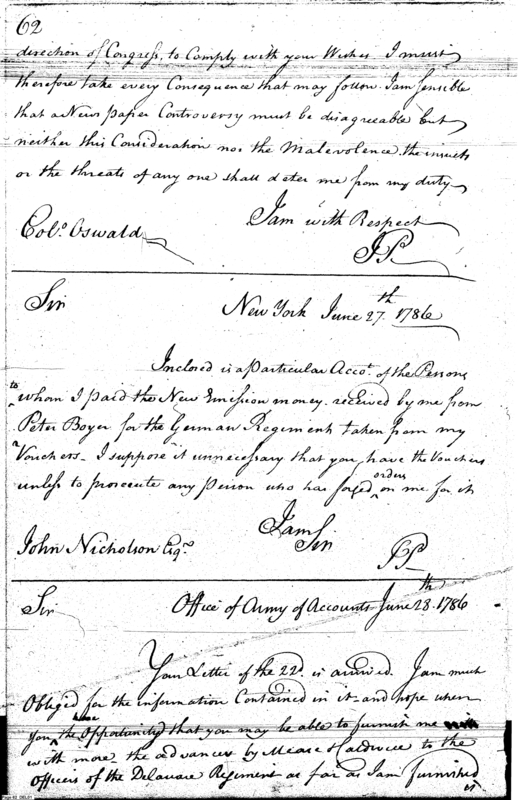 62
direction of Congress, to Comply with your Wishes. I must
therefore take every Consequence that may follow. I am sensible
that a News paper Controversy must be disagreeable but
neither this Consideration nor the Malevolence the insults
or the threats of any one shall deter me from my duty
I am with Respect
Colo. Oswald
JP.
Sir
New York June 27.th 1786
Inclosed is a particular Accot. of the Persons
to whom I paid the New Emission money received by me from
Peter Boyer for the German Regiment taken from my
Vouchers. I suppose it unnecessary that you have the Vouchers
unless to prosecute any person who has forged orders on me for it
I am Sir
John Nicholson Esqr.
JP
Sir
Office of Army of Accounts June 28.th 1786
Your Letter of the 22d. is arrived. I am much
Obliged for the information Contained in it and hope when
you have the Opportunity that you may be able to furnish me
with more the advances by Mease &amp; Caldwell to the
Officers of the Delaware Regiment as far as I am furnished